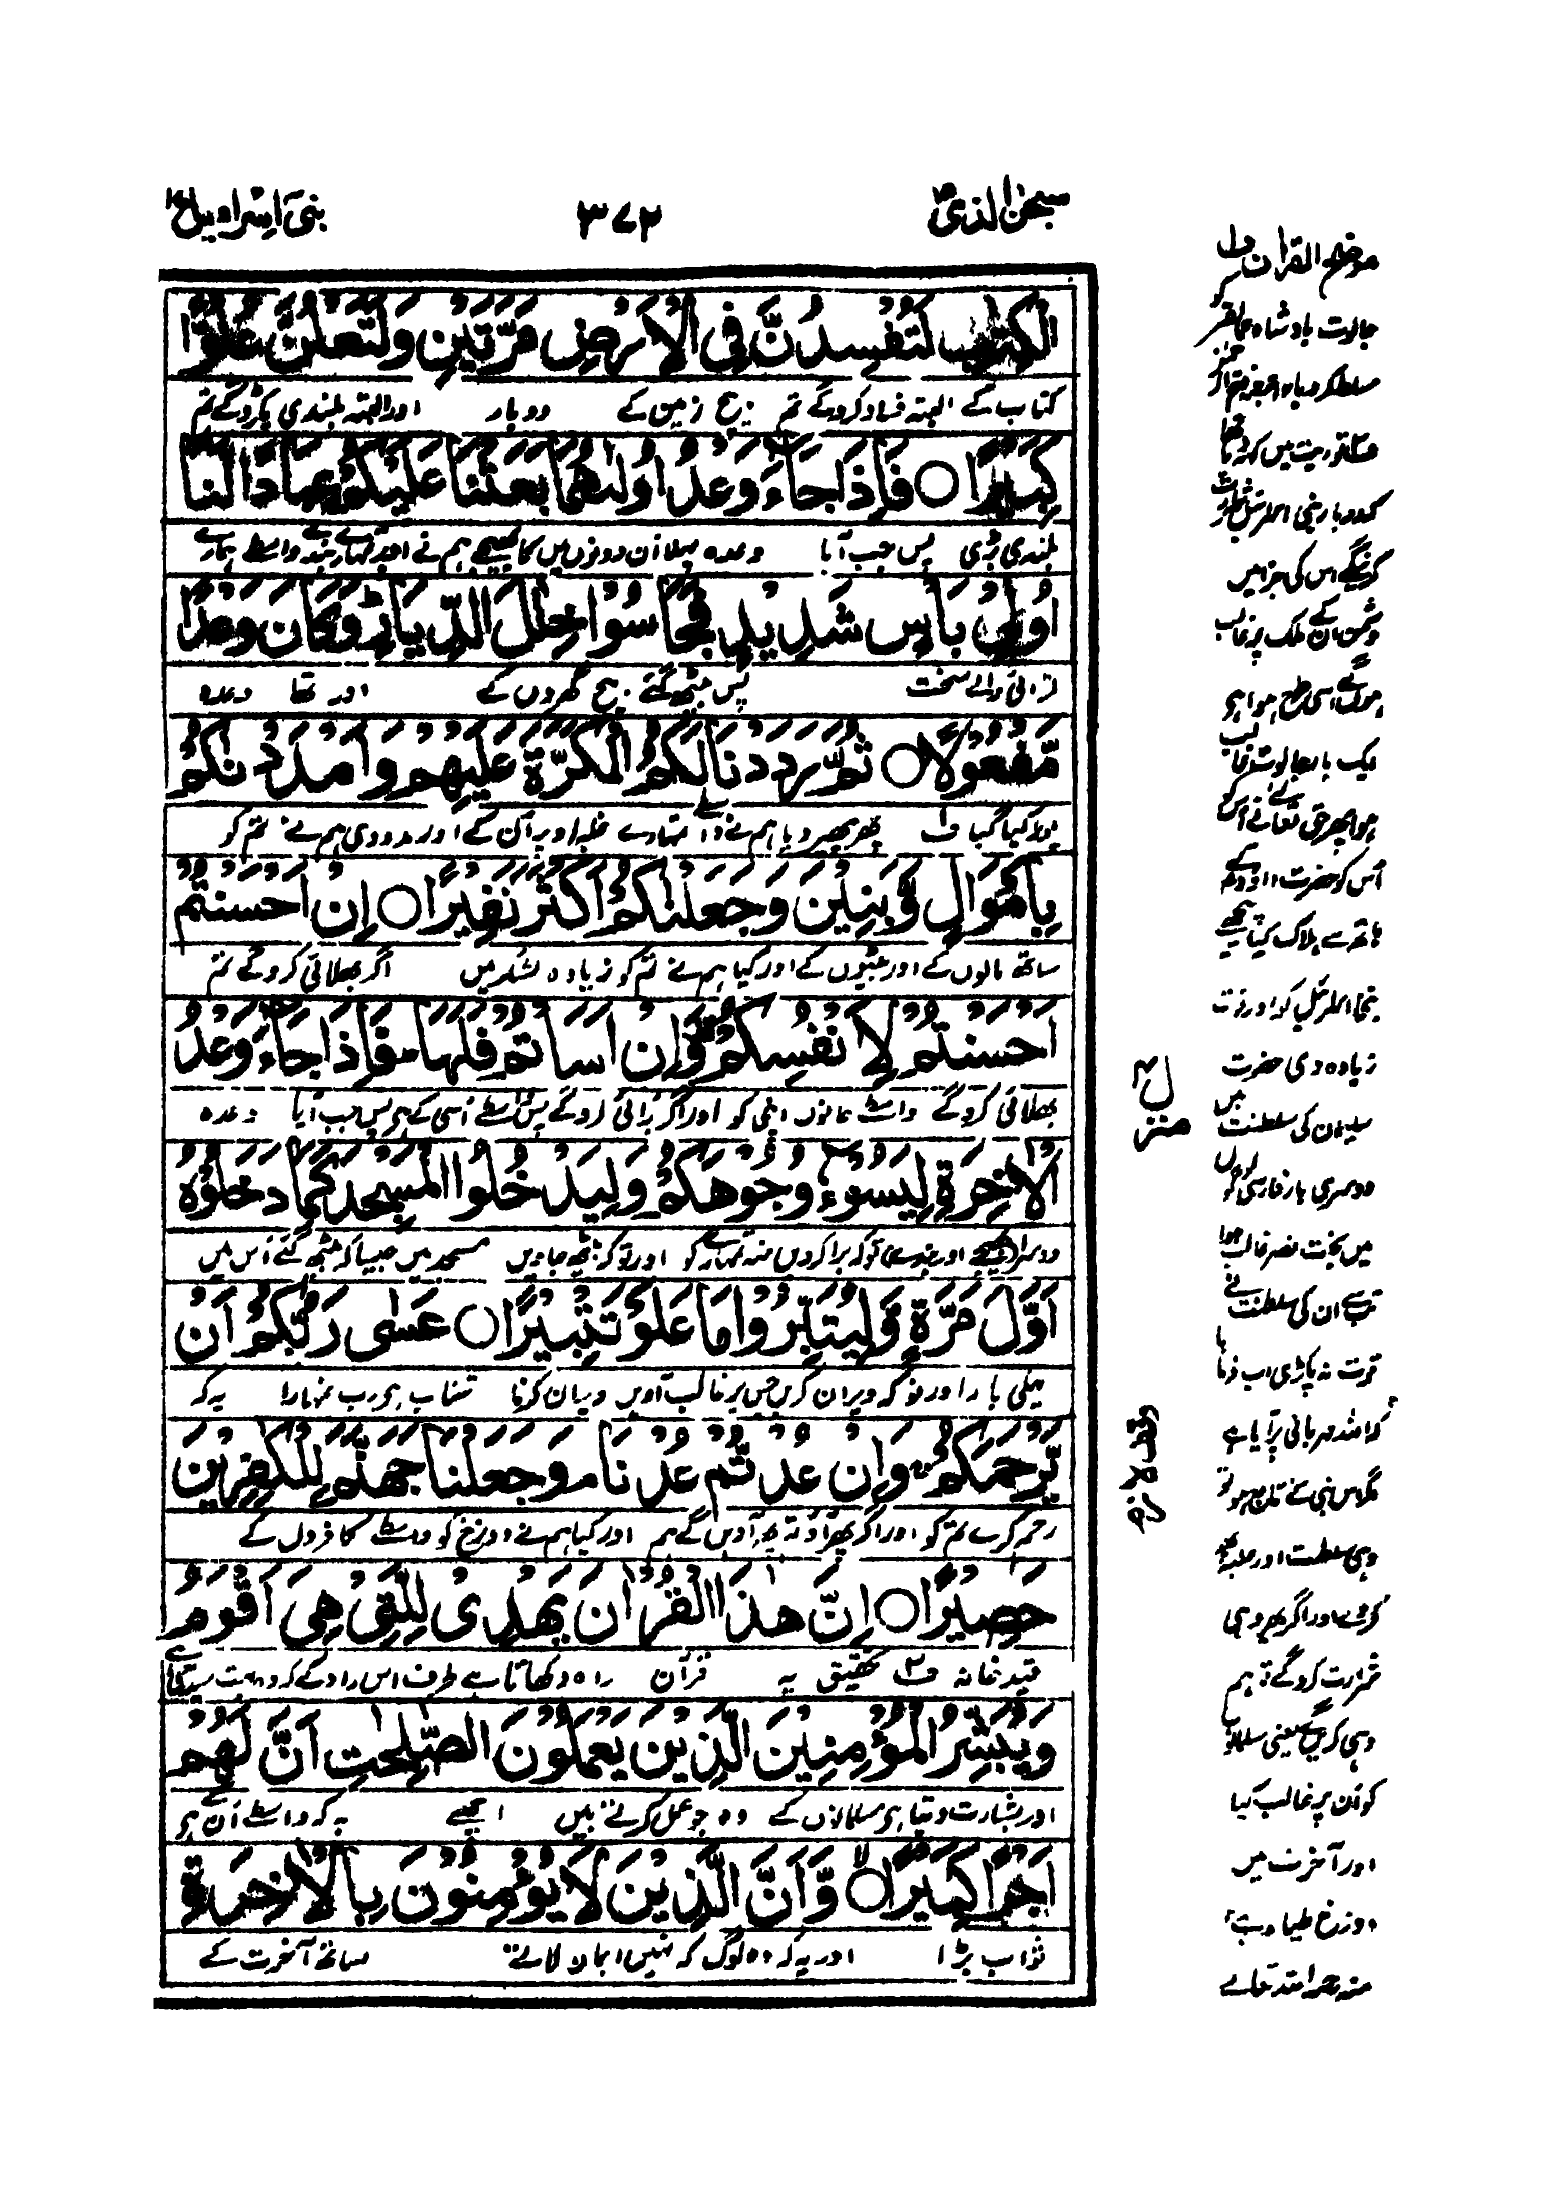 سبحٰن الذی ۱۵
۳۷۲
بنیٓ اسراءیل ۱۷
الْكِتٰبِ لَتُفْسِدُنَّ فِی الْاَرْضِ مَرَّتَیْنِ وَلَتَعْلُنَّ عُلُوًّا
کتاب کے البتہ فساد کروگے تم بیچ زمین کے دو بار اور البتہ بلندی پکڑوگے تم
كَبِیْرًا ○ فَاِذَا جَآءَ وَعْدُ اُوْلٰىهُمَا بَعَثْنَا عَلَیْكُمْ عِبَادًا لَّنَا
بلندی بڑی پس جب آیا وعدہ پہلا اُن دونوں میں کا بھیجے ہم نے اوپر تمہارے بندے واسطے ہمارے
اُولِیْ بَاْسٍ شَدِیْدٍ فَجَاسُوْا خِلٰلَ الدِّیَارِ ؕ وَكَانَ وَعْدًا
لڑائی والے سخت پس بیٹھ گئے بیچ گھروں کے اور تھا وعدہ
مَّفْعُوْلًا ○ ثُمَّ رَدَدْنَا لَكُمُ الْكَرَّةَ عَلَیْهِمْ وَاَمْدَدْنٰكُمْ
ہوا کیا گیا ف۱ پھر پھیر دیا ہم نے واسطے تمہارے غلبہ اوپر اُن کے اور مدد دی ہم نے تم کو
بِاَمْوَالٍ وَّبَنِیْنَ وَجَعَلْنٰكُمْ اَكْثَرَ نَفِیْرًا ○ اِنْ اَحْسَنْتُمْ
ساتھ مالوں کے اور بیٹیوں کے اور کیا ہم نے تم کو زیادہ لشکر میں اگر بھلائی کروگے تم
اَحْسَنْتُمْ لِاَنْفُسِكُمْ ۫ وَاِنْ اَسَاْتُمْ فَلَهَا ؕ فَاِذَا جَآءَ وَعْدُ
بھلائی کروگے واسطے جانوں اپنی کو اور اگر بُرائی کروگے پس واسطے اُسی کے ہے پس جب آیا وعدہ
الْاٰخِرَةِ لِیَسُوْٓءٗا وُجُوْهَكُمْ وَلِیَدْخُلُوا الْمَسْجِدَ كَمَا دَخَلُوْهُ
دوسرا بھیجے اور بندے توکہ برا کردیں منہ تمہارے کو اور توکہ بیٹھ جاویں مسجد میں جیسا کہ بیٹھ گئے اُس میں
اَوَّلَ مَرَّةٍ وَّلِیُتَبِّرُوْا مَا عَلَوْا تَتْبِیْرًا ○ عَسٰى رَبُّكُمْ اَنْ
پہلی بار اور توکہ ویران کریں جس پر غالب آویں ویران کرنا شتاب ہے رب تمہارا یہ کہ
یَّرْحَمَكُمْ ۚ وَاِنْ عُدْتُّمْ عُدْنَا ۘ وَجَعَلْنَا جَهَنَّمَ لِلْكٰفِرِیْنَ
رحم کرے تم کو اور اگر پھر آؤ تم پھر آویں گے ہم اور کیا ہم نے دوزخ کو واسطے کافروں کے
حَصِیْرًا ○ اِنَّ هٰذَا الْقُرْاٰنَ یَهْدِیْ لِلَّتِیْ هِیَ اَقْوَمُ
قید خانہ ف۲ تحقیق یہ قرآن راہ دکھاتا ہے طرف اس راہ کے کہ وہ بہت سیدھی ہے
وَیُبَشِّرُ الْمُؤْمِنِیْنَ الَّذِیْنَ یَعْمَلُوْنَ الصّٰلِحٰتِ اَنَّ لَهُمْ
اور بشارت دیتا ہے مسلمانوں کے وہ جو عمل کرتے ہیں اچھے یہ کہ واسطے اُن کے ہے
اَجْرًا كَبِیْرًا ○ وَّاَنَّ الَّذِیْنَ لَا یُؤْمِنُوْنَ بِالْاٰخِرَةِ
ثواب بڑا اور یہ کہ وہ لوگ کہ نہیں ایمان لاتے ساتھ آخرت کے
موضح القرآن ف۱
جالوت بادشاہ کافر
ف۲ توریت میں کہہ دیا تھا
کہ دو بار بنی اسرائیل شرارت
کرینگے اس کی جزا میں
دشمن ان کے ملک پر غالب
ہونگے اسی طرح ہوا ہے
ایک بار جالوت غالب
ہوا پھر حق تعالٰے نے اس کو
اُس کو حضرت داؤد کے
ہاتھ سے ہلاک کیا پیچھے
بنی اسرائیل کو اور قوت
زیادہ دی حضرت
سلیمان کی سلطنت میں
دوسری بار فارسی لوگوں
میں بخت نصر غالب ہوا
تب سے ان کی سلطنت نے
قوت نہ پکڑی اب فرمایا
کہ اللہ مہربانی پر آیا ہے
اگر اس نبی کے تابع ہو تو
وہی سلطنت اور غلبہ پھر
کر دے اور اگر پھر وہی
شرارت کروگے تو ہم
وہی کریں گے یعنی مسلمانوں
کو اُن پر غالب کیا
اور آخرت میں
دوزخ طیار ہے
منہ رحمہ اللہ تعالٰے
منزل ۴
وقف لازم